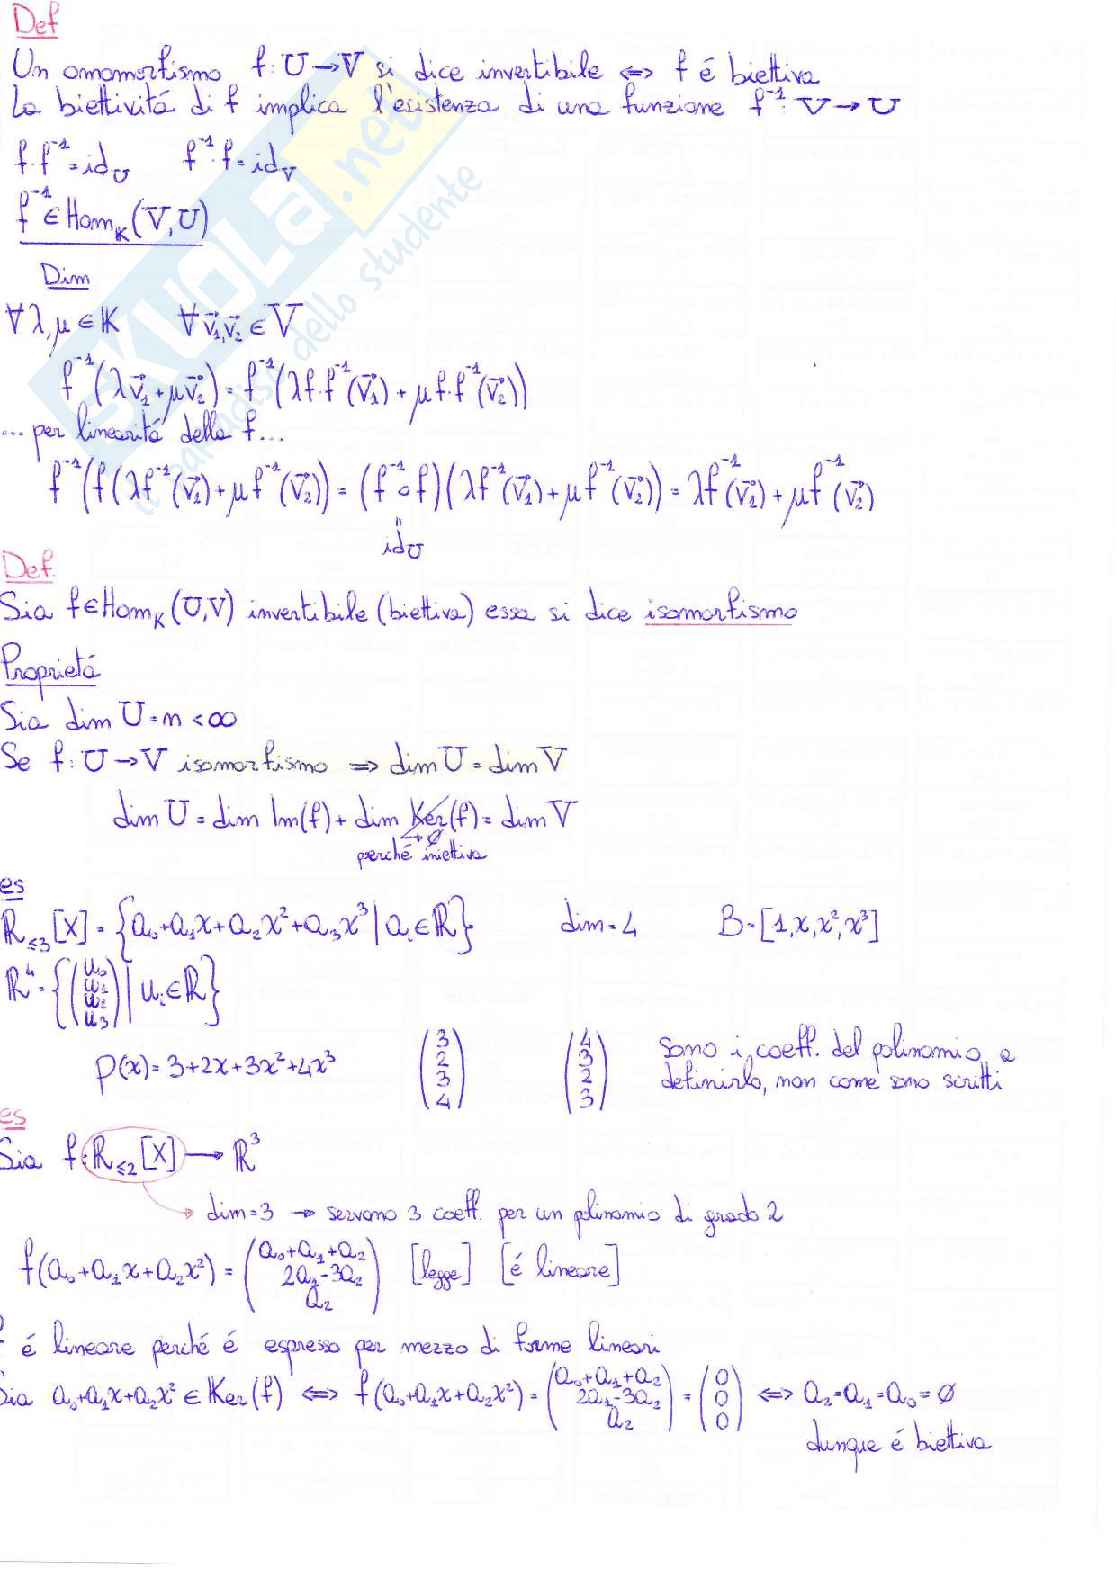 Def
Un omomorfismo f: U→V si dice invertibile ⇔ f é biettiva
La biettivitá di f implica l'esistenza di una funzione f⁻¹: V→U
f·f⁻¹=id_U f⁻¹·f=id_V
f⁻¹∈Hom_K(V,U)
Dim
∀λ,μ∈K ∀v⃗₁,v⃗₂∈V
f⁻¹(λv⃗₁+μv⃗₂)=f⁻¹(λf·f⁻¹(v⃗₁)+μf·f⁻¹(v⃗₂))
...per linearitá della f...
f⁻¹(f(λf⁻¹(v⃗₁)+μf⁻¹(v⃗₂))=(f⁻¹∘f)(λf⁻¹(v⃗₁)+μf⁻¹(v⃗₂))=λf⁻¹(v⃗₁)+μf⁻¹(v⃗₂)
=
id_U
Def.
Sia f∈Hom_K(U,V) invertibile (biettiva) essa si dice isomorfismo
Proprietá
Sia dim U=n<∞
Se f: U→V isomorfismo ⇒ dim U=dim V
dim U=dim Im(f)+dim Ker(f)=dim V
→∅
perché iniettiva
es
R≤3[X]={a₀+a₁x+a₂x²+a₃x³|aᵢ∈R} dim=4 B=[1,x,x²,x³]
R⁴={(u₀ u₁ u₂ u₃)|uᵢ∈R}
P(x)=3+2x+3x²+4x³ (3 2 3 4) (4 3 2 3) sono i coeff. del polinomio a
definirlo, non come sono scritti
es
Sia f:R≤2[X]→R³
→ dim=3 → servono 3 coeff. per un polinomio di grado 2
f(a₀+a₁x+a₂x²)=(a₀+a₁+a₂ 2a₁-3a₂ a₂) [legge] [é lineare]
f é lineare perché é espresso per mezzo di forme lineari
Sia a₀+a₁x+a₂x²∈Ker(f) ⇔ f(a₀+a₁x+a₂x²)=(a₀+a₁+a₂ 2a₁-3a₂ a₂)=(0 0 0) ⇔ a₂=a₁=a₀=∅
dunque é biettiva
SKUOLA.net
il paradiso dello studente